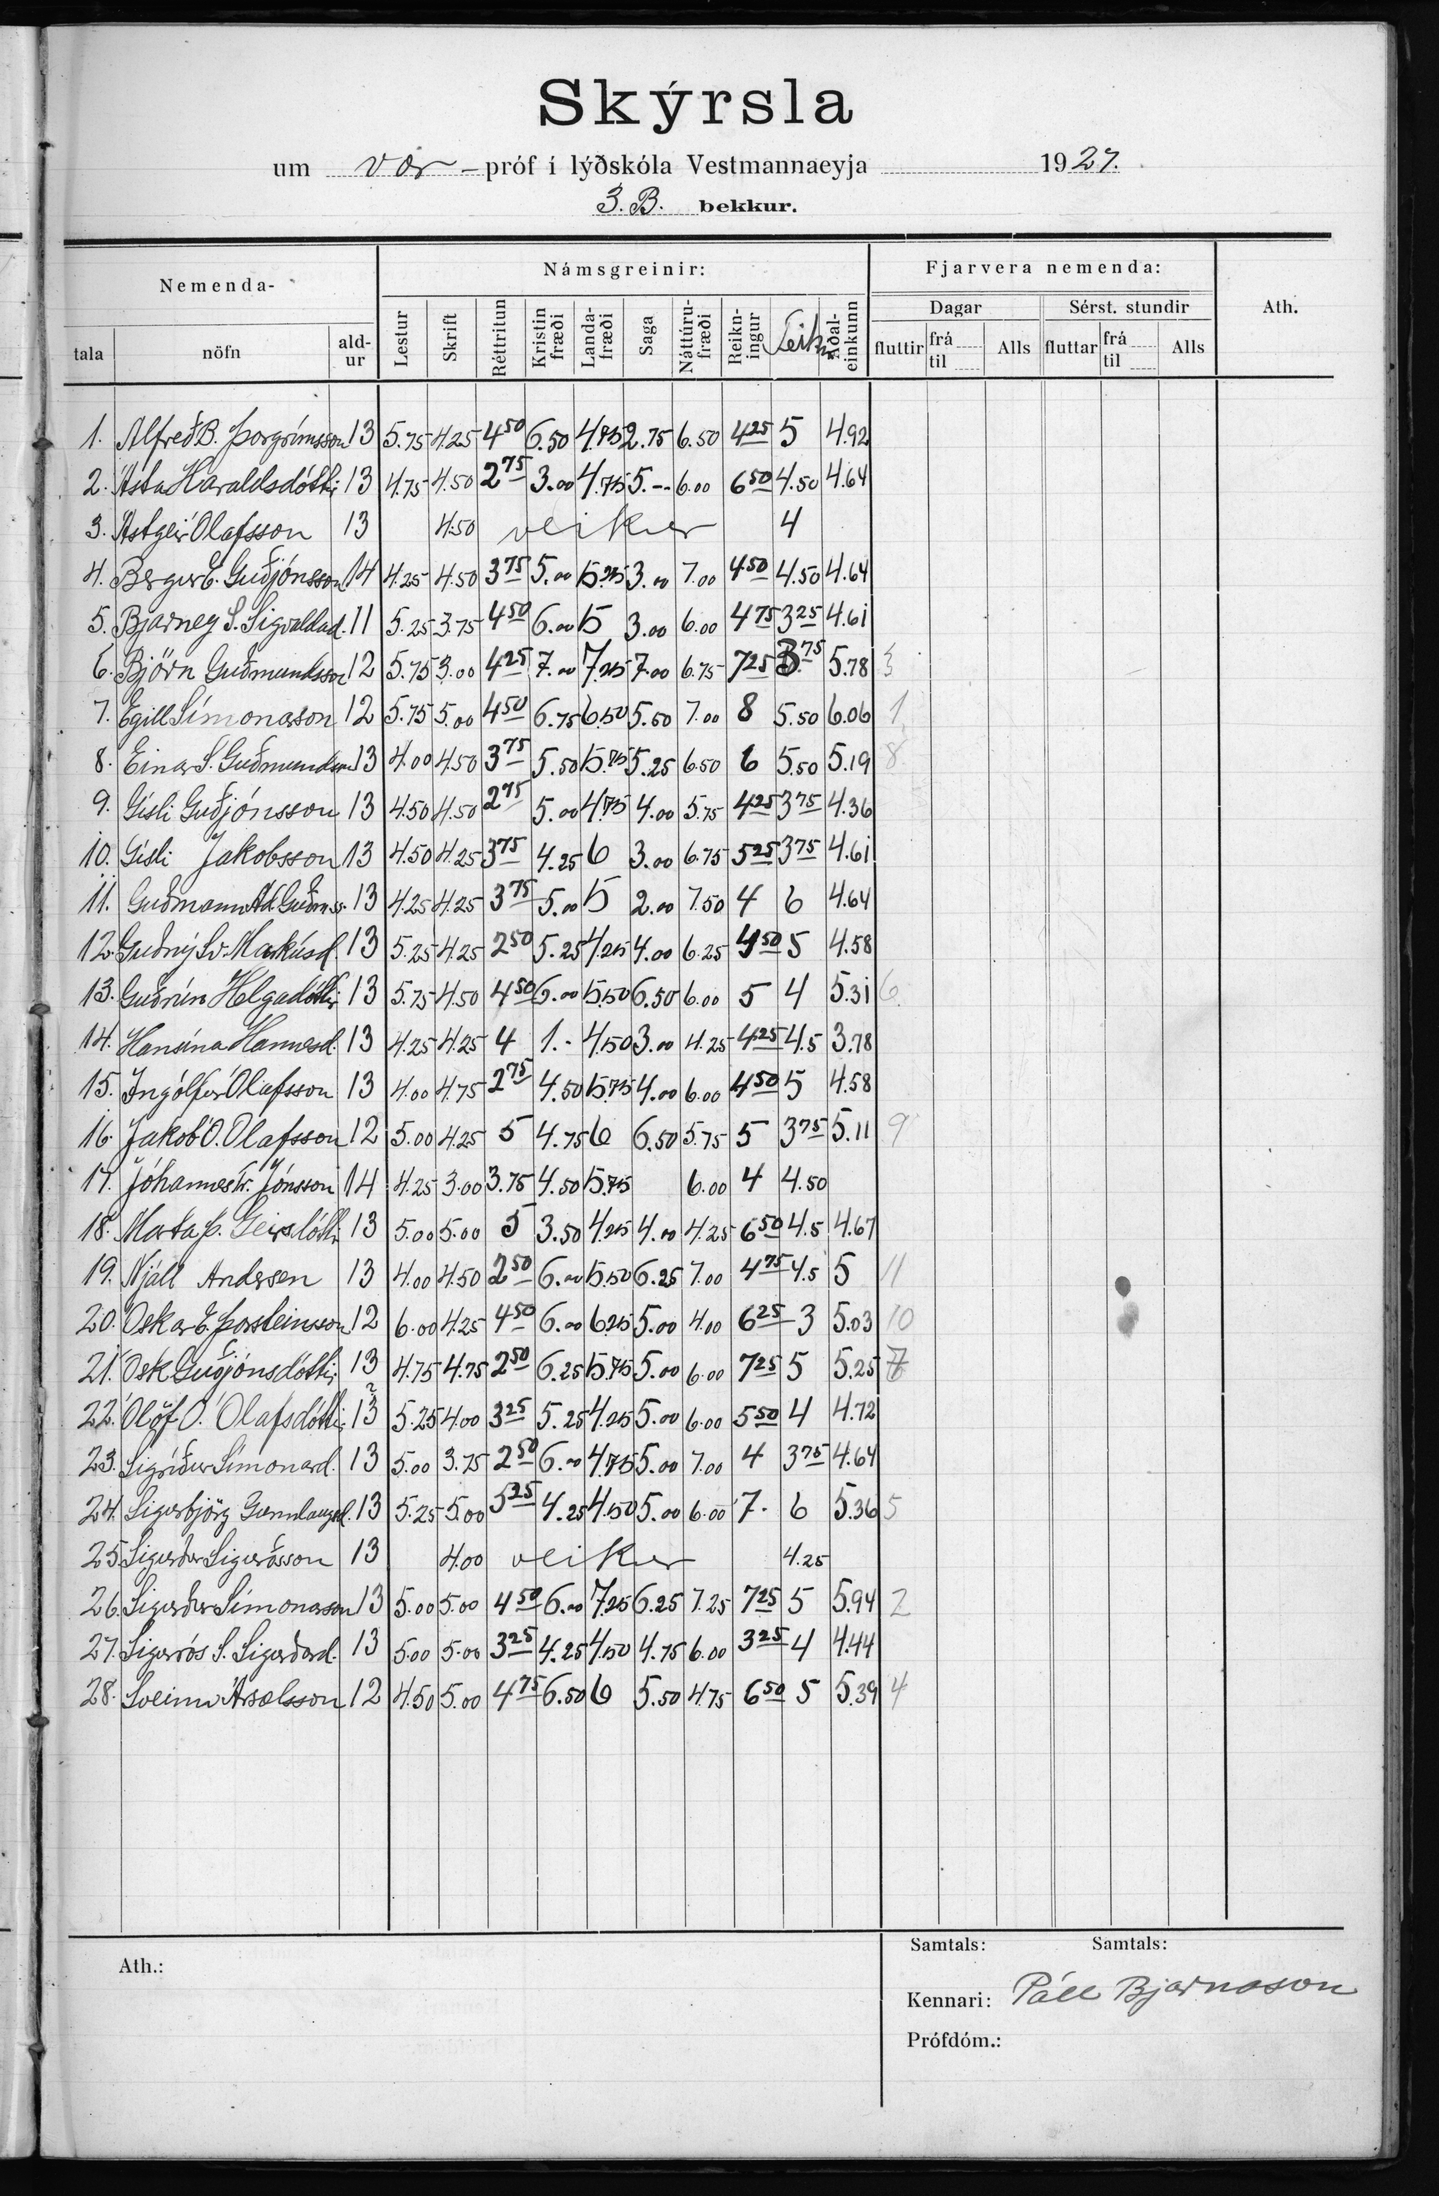 Skýrsla
um vor - próf í lýðskóla Vestmannaeyja 1927.
3. B. bekkur.
Nemenda- Námsgreinir: Fjarvera nemenda: Ath.
Dagar Sérst. stundir
tala nöfn ald-ur Lestur Skrift Réttritun Kristin fræði Landa-fræði Saga Náttúru-fræði Reikn-ingur Teikn Aðal-einkunn fluttir frá til Alls fluttar frá til Alls
1. Alfreð B. Þorgrímsson 13 5.75 4.25 4 50 6.50 4.75 2.75 6.50 4 25 5 4.92
2. Ásta Haraldsdóttir 13 4.75 4.50 2 75 3.00 4.75 5.-- 6.00 6 50 4.50 4.64
3. Ástgeir Ólafsson 13 4.50 veikur 4
4. Bergur E. Guðjónsson 14 4.25 4.50 3 75 5.00 5.25 3.00 7.00 4 50 4.50 4.64
5. Bjarney S. Sigvaldad. 11 5.25 3.75 4 50 6.00 5 3.00 6.00 4 75 3 25 4.61
6. Björn Guðmundsson 12 5.75 3.00 4 25 7.00 7.25 7.00 6.75 7 25 3.75 5.78 3
7. Egill Símonarson 12 5.75 5.00 4 50 6.75 6.50 5.50 7.00 8 5.50 6.06 1
8. Einar S. Guðmundsson 13 4.00 4.50 3 75 5.50 5.75 5.25 6.50 6 5.50 5.19 8
9. Gísli Guðjónsson 13 4.50 4.50 2 75 5.00 4.75 4.00 5.75 4 25 3 75 4.36
10. Gísli Jakobsson 13 4.50 4.25 3 75 4.25 6 3.00 6.75 5 25 3 75 4.61
11. Guðmann Ad. Guðmss. 13 4.25 4.25 3 75 5.00 5 2.00 7.50 4 6 4.64
12. Guðný Sv. Markúsd. 13 5.25 4.25 2 50 5.25 4.25 4.00 6.25 4 50 5 4.58
13. Guðrún Helgadóttir 13 5.75 4.50 4 50 6.00 5.50 6.50 6.00 5 4 5.31 6
14. Hansína Hannesd. 13 4.25 4.25 4 1.- 4.50 3.00 4.25 4 25 4.5 3.78
15. Ingólfur Ólafsson 13 4.00 4.75 2 75 4.50 5.75 4.00 6.00 4 50 5 4.58
16. Jakob Ó. Ólafsson 12 5.00 4.25 5 4.75 6 6.50 5.75 5 3 75 5.11 9
17. Jóhannes Tr. Jónsson 14 4.25 3.00 3.75 4.50 5.75 6.00 4 4.50
18. Marta Þ. Geirsdóttir 13 5.00 5.00 5 3.50 4.25 4.00 4.25 6 50 4.5 4.67
19. Njáll Andersen 13 4.00 4.50 2 50 6.00 5.50 6.25 7.00 4 75 4.5 5 11
20. Óskar E. Þorsteinsson 12 6.00 4.25 4 50 6.00 6.25 5.00 4.00 6 25 3 5.03 10
21. Ósk Guðjónsdóttir 13 4.75 4.75 2 50 6.25 5.75 5.00 6.00 7 25 5 5.25 7
22. Ólöf Ó. Ólafsdóttir 13 ? 5.25 4.00 3 25 5.25 4.25 5.00 6.00 5 50 4 4.72
23. Sigríður Símonard. 13 5.00 3.75 2 50 6.00 4.75 5.00 7.00 4 3 75 4.64
24. Sigurbjörg Gunnlaugsd. 13 5.25 5.00 5 25 4.25 4.50 5.00 6.00 7. 6 5.36 5
25. Sigurður Sigurðsson 13 4.00 veikur 4.25
26. Sigurður Símonarson 13 5.00 5.00 4 50 6.00 7.25 6.25 7.25 7 25 5 5.94 2
27. Sigurrós S. Sigurðard. 13 5.00 5.00 3 25 4.25 4.50 4.75 6.00 3 25 4 4.44
28. Sveinn Ársælsson 12 4.50 5.00 4 75 6.50 6 5.50 4.75 6 50 5 5.39 4
Ath.: Samtals: Samtals:
Kennari: Páll Bjarnason
Prófdóm.: